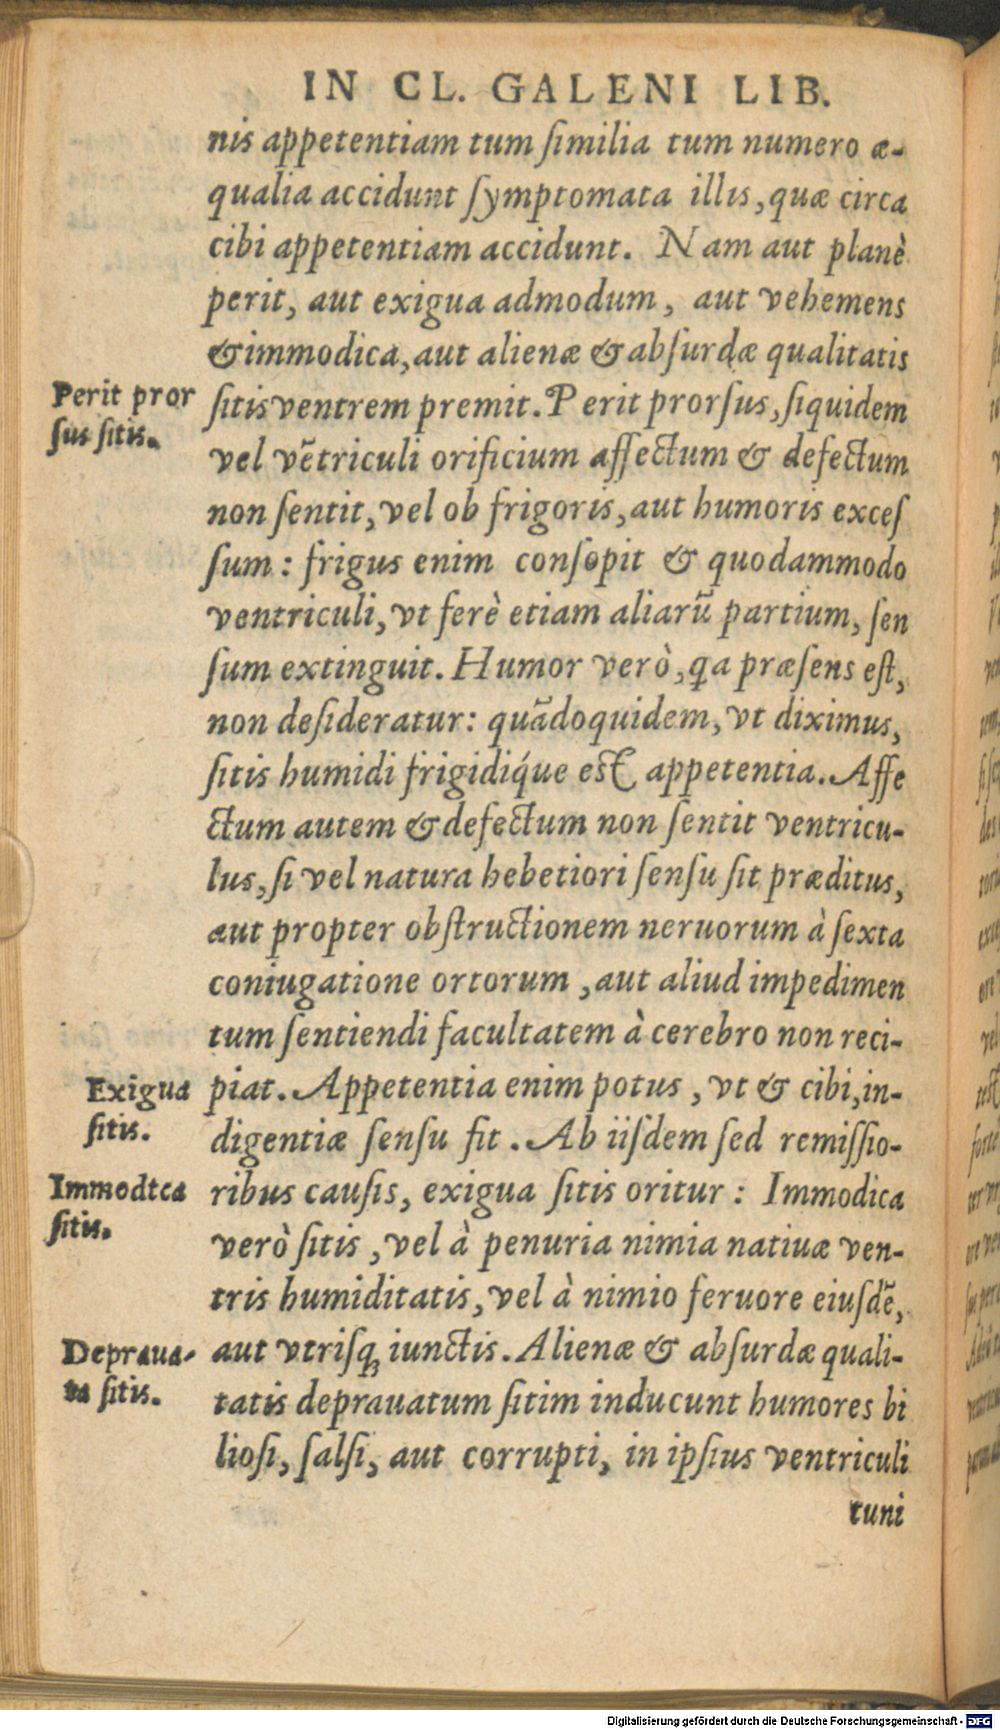 IN CL. GALENI LIB.
nis appetentiam tum ſimilia tum numero æ-
qualia accidunt ſymptomata illis, quæ circa
cibi appetentiam accidunt. Nam aut planè
perit, aut exigua admodum, aut vehemens
& immodica, aut alienæ & abſurdæ qualitatis
Perit pror
ſus ſitis.
ſitis ventrem premit. Perit prorſus, ſiquidem
vel vẽtriculi orificium affectum & defectum
non ſentit, vel ob frigoris, aut humoris exceſ
ſum: frigus enim conſopit & quodammodo
ventriculi, vt ferè etiam aliarũ partium, ſen
ſum extinguit. Humor verò, qa præſens eſt,
non deſideratur: quãdoquidem, vt diximus,
ſitis humidi frigidiq́ue est appetentia. Affe
ctum autem & defectum non ſentit ventricu-
lus, ſi vel natura hebetiori ſenſu ſit præditus,
aut propter obſtructionem neruorum à ſexta
coniugatione ortorum, aut aliud impedimen
tum ſentiendi facultatem à cerebro non reci-
Exigua
ſitis.
piat. Appetentia enim potus, vt & cibi, in-
digentiæ ſenſu fit. Ab iiſdem ſed remiſſio-
Immodtca
ſitis.
ribus cauſis, exigua ſitis oritur: Immodica
verò ſitis, vel à penuria nimia natiuæ ven-
tris humiditatis, vel à nimio feruore eiuſdẽ,
Depraua-
ta ſitis.
aut vtriſq; iunctis. Alienæ & abſurdæ quali-
tatis deprauatum ſitim inducunt humores bi
lioſi, ſalſi, aut corrupti, in ipſius ventriculi
tuni
Digitalisierung gefördert durch die Deutsche Forschungsgemeinschaft - DFG